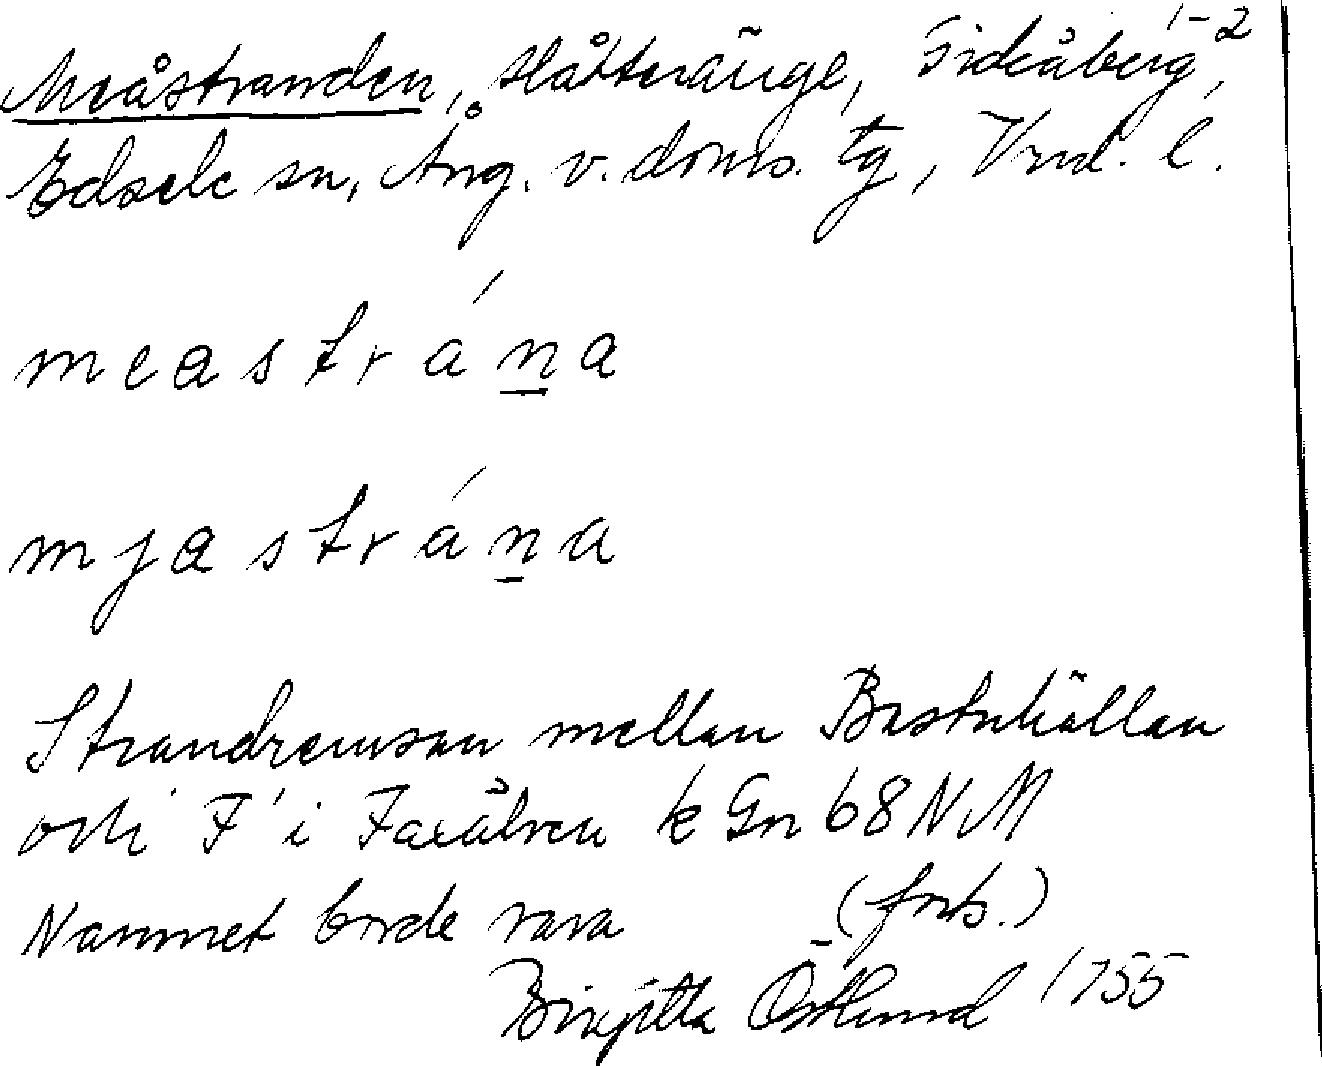 Meåstranden, slåtteränge, Gideåberg 1-2,
Edsele sn, Ång. v. doms. tg, Vnd. l.
meastrána
mjastrána
Strandremsan mellan Bastuhällan
och F i Faxälven k Gn 68 NM
Namnet borde vara (fnb.)
Birgitta Östlund 1955